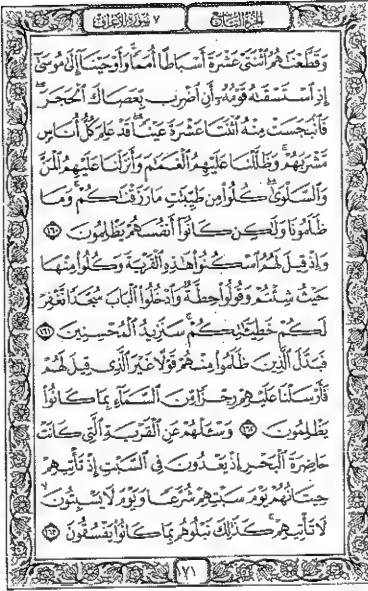 الجزء التاسع ٧ سورة الأعراف
وَقَطَّعْنَٰهُمُ ٱثْنَتَىْ عَشْرَةَ أَسْبَاطًا أُمَمًا ۚ وَأَوْحَيْنَآ إِلَىٰ مُوسَىٰٓ
إِذِ ٱسْتَسْقَىٰهُ قَوْمُهُۥٓ أَنِ ٱضْرِب بِّعَصَاكَ ٱلْحَجَرَ ۖ
فَٱنۢبَجَسَتْ مِنْهُ ٱثْنَتَا عَشْرَةَ عَيْنًا ۖ قَدْ عَلِمَ كُلُّ أُنَاسٍ
مَّشْرَبَهُمْ ۚ وَظَلَّلْنَا عَلَيْهِمُ ٱلْغَمَٰمَ وَأَنزَلْنَا عَلَيْهِمُ ٱلْمَنَّ
وَٱلسَّلْوَىٰ ۖ كُلُوا۟ مِن طَيِّبَٰتِ مَا رَزَقْنَٰكُمْ ۚ وَمَا
ظَلَمُونَا وَلَٰكِن كَانُوٓا۟ أَنفُسَهُمْ يَظْلِمُونَ ١٦٠
وَإِذْ قِيلَ لَهُمُ ٱسْكُنُوا۟ هَٰذِهِ ٱلْقَرْيَةَ وَكُلُوا۟ مِنْهَا
حَيْثُ شِئْتُمْ وَقُولُوا۟ حِطَّةٌ وَٱدْخُلُوا۟ ٱلْبَابَ سُجَّدًا نَّغْفِرْ
لَكُمْ خَطِيٓـَٰٔتِكُمْ ۚ سَنَزِيدُ ٱلْمُحْسِنِينَ ١٦١
فَبَدَّلَ ٱلَّذِينَ ظَلَمُوا۟ مِنْهُمْ قَوْلًا غَيْرَ ٱلَّذِى قِيلَ لَهُمْ
فَأَرْسَلْنَا عَلَيْهِمْ رِجْزًا مِّنَ ٱلسَّمَآءِ بِمَا كَانُوا۟
يَظْلِمُونَ ١٦٢ وَسْـَٔلْهُمْ عَنِ ٱلْقَرْيَةِ ٱلَّتِى كَانَتْ
حَاضِرَةَ ٱلْبَحْرِ إِذْ يَعْدُونَ فِى ٱلسَّبْتِ إِذْ تَأْتِيهِمْ
حِيتَانُهُمْ يَوْمَ سَبْتِهِمْ شُرَّعًا وَيَوْمَ لَا يَسْبِتُونَ ۙ
لَا تَأْتِيهِمْ ۚ كَذَٰلِكَ نَبْلُوهُم بِمَا كَانُوا۟ يَفْسُقُونَ ١٦٣
١٧١